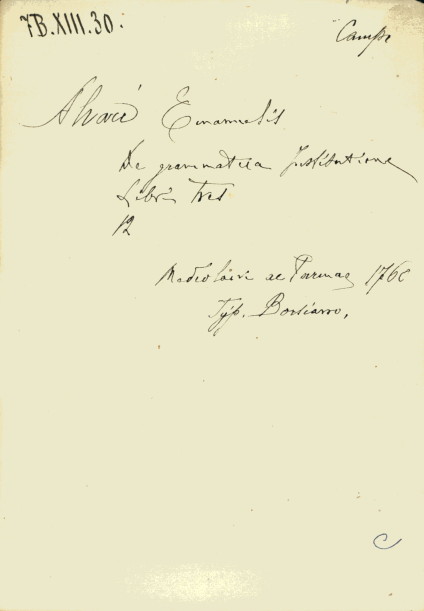 7B.XIII.30.
Campi
Alvari Emanuelis
De grammatica Institutione
Libri tres
12
Mediolani ac Parmae 176
Typ. Borsiano.
C